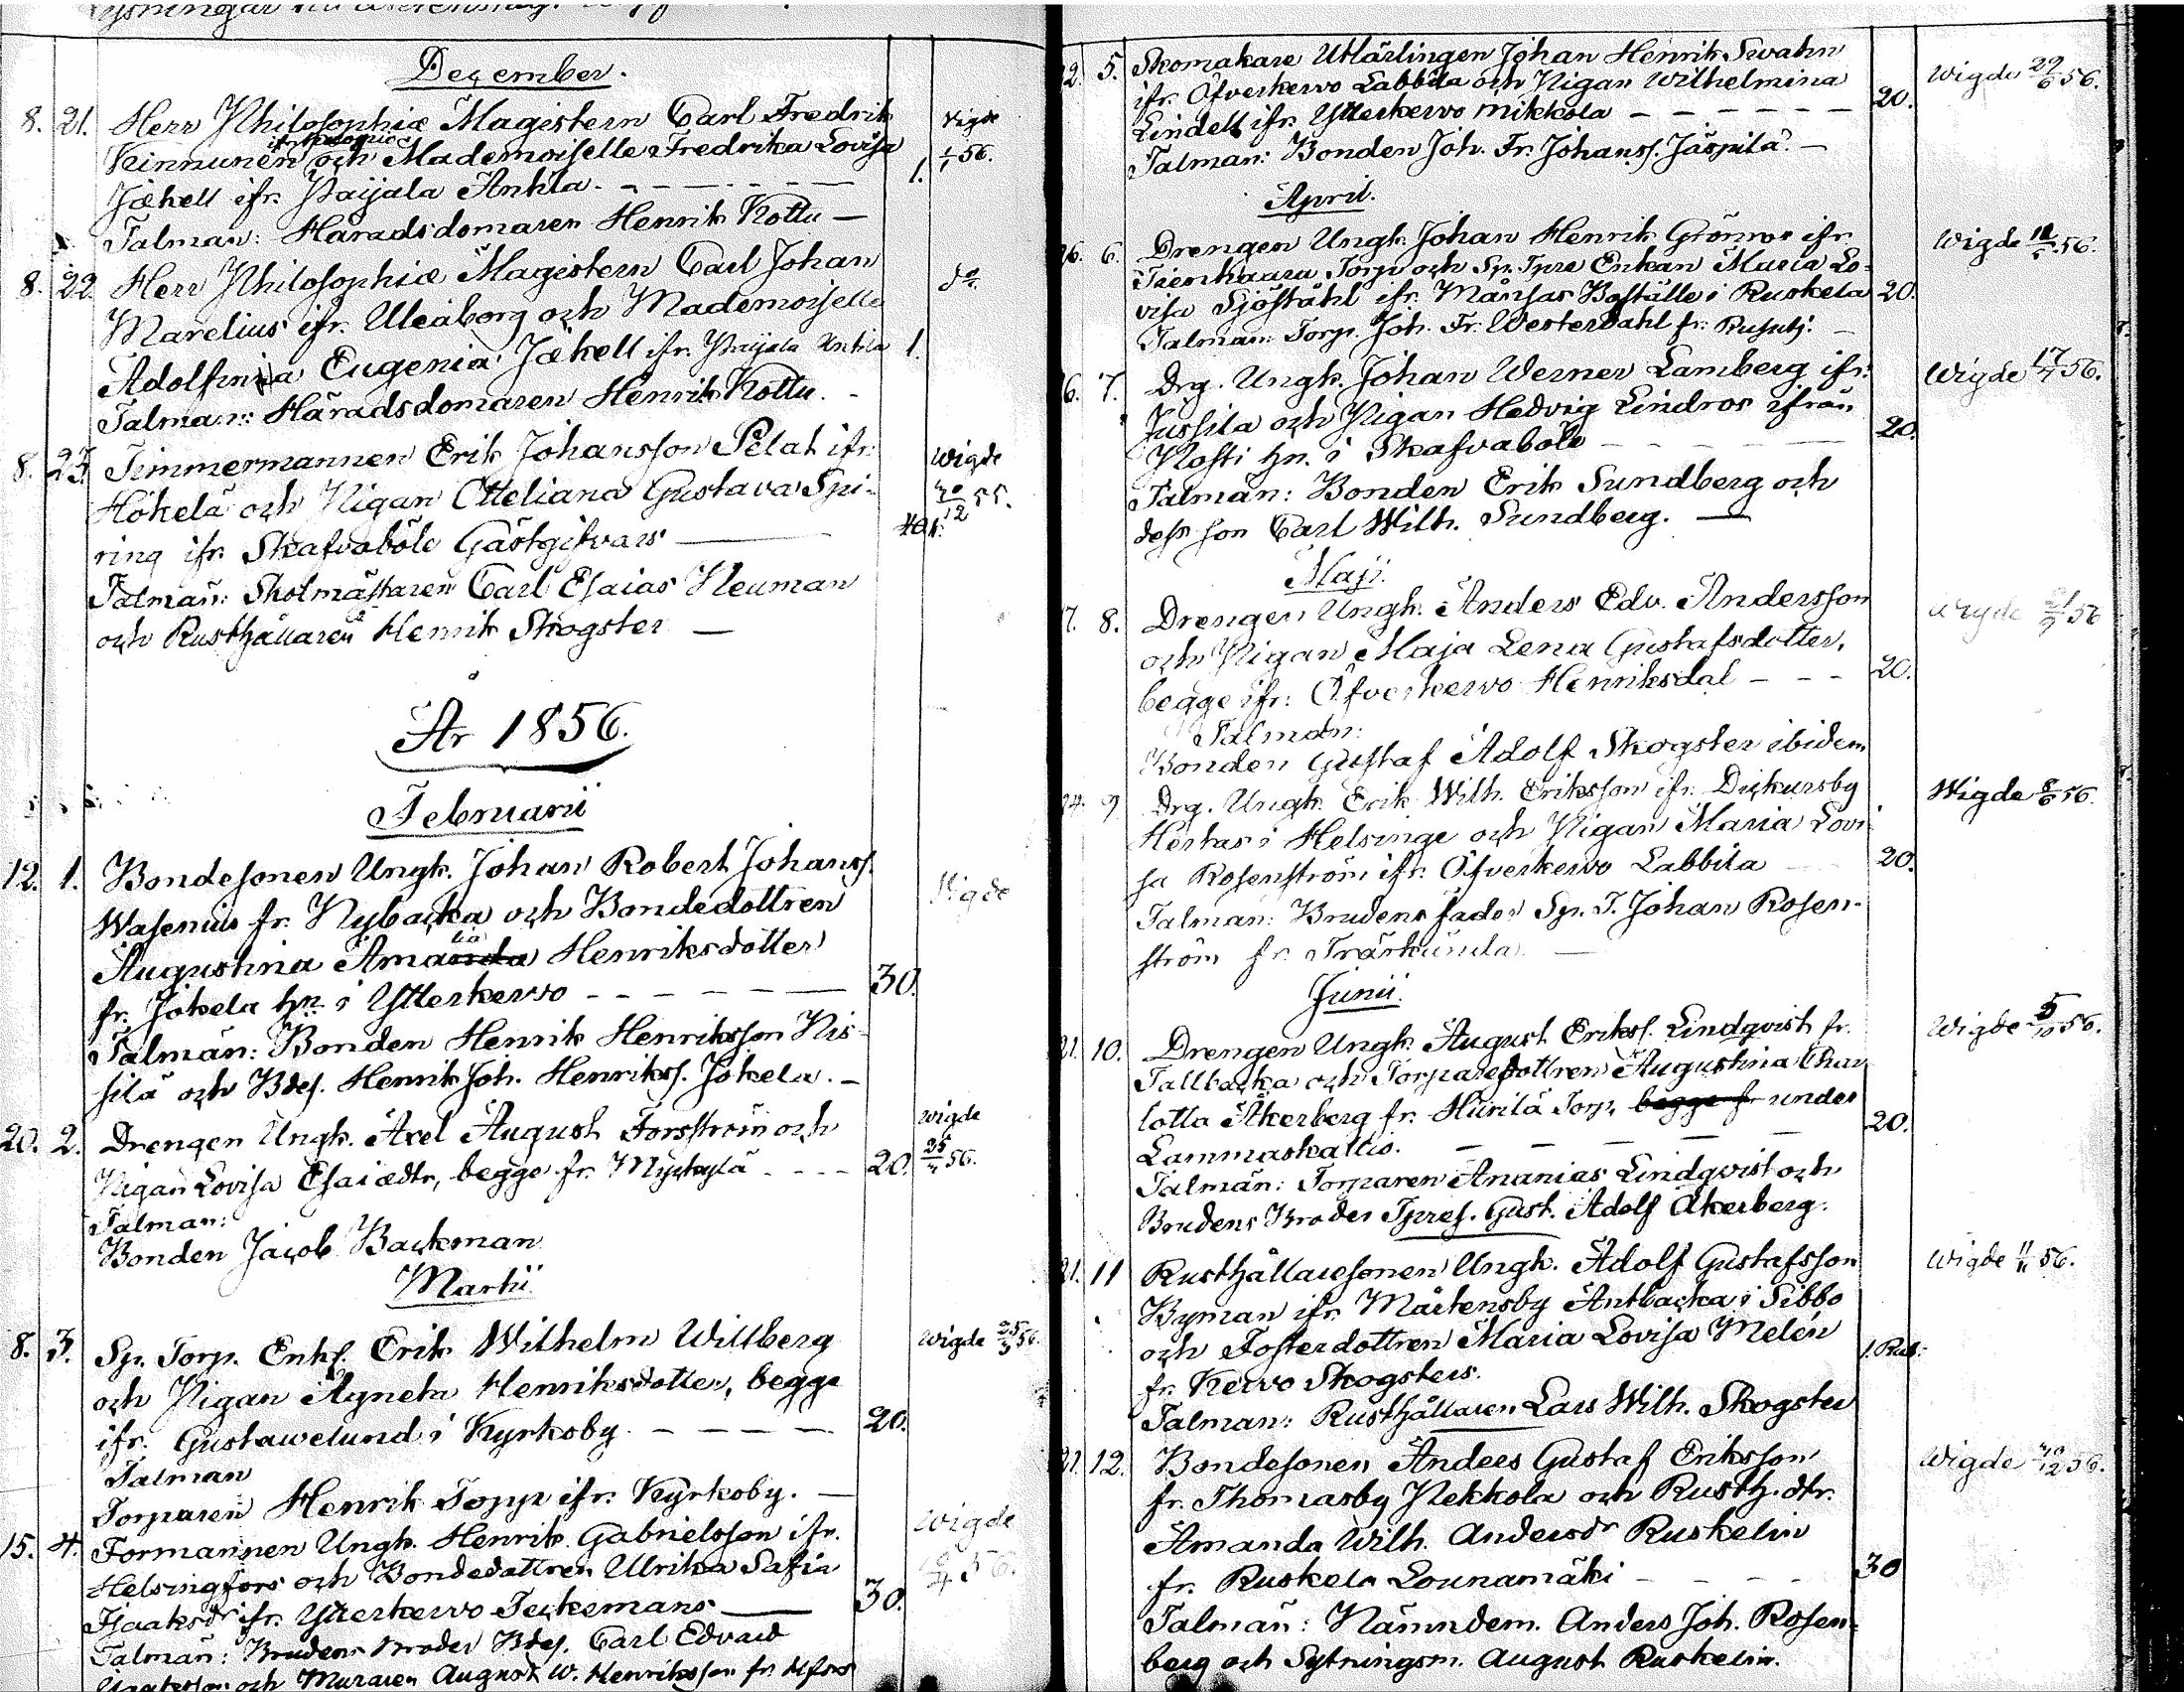 December.
8. 21. Herr Philosophiæ Magistern Carl Fredrik Vigde
Kinnunen och Mademoiselle Fredrika Lovisa 1/1 56.
Jækell ifr. Paijala Anttila. 1.
Talman: Häradsdomaren Henrik Kottu —
8. 22 Herr Philosophiæ Magistern Carl Johan do
Marelius ifr. Uleåborg och Mademoiselle
Adolfina Eugenia Jækell ifr. Paijala Anttila 1.
Talman: Häradsdomaren Henrik Kottu.
8. 23. Timmermannen Erik Johansson Pelat ifr. Wigde
Hökelä och Pigan Otteliana Gustava Spi- 30/12 55.
ring ifr. Skafvaböle Gästgifvars —
Talmän: Skolmästaren Carl Esaias Neuman
och Rusthållaren Henrik Skogster —
År 1856.
Februarii
12. 1. Bondesonen Ungk. Johan Robert Johanss. Vigde
Wasenius fr. Nybacka och Bondedottren
Augustina Amanda lia Henriksdotter
fr. Jokela hn i Ytterkervo 30.
Talmän: Bonden Henrik Henriksson Nis-
silä och Bdes. Henrik Joh. Henrikss. Jokela. —
20. 2. Drengen Ungk. Axel August Forsström och Wigde
Pigan Lovisa Esaiædtr, begge fr. Nyckylä 20. 25/ 56.
Talman:
Bonden Jacob Backman
Martii
8. 3. Sp. Torp. Enkl. Erik Wilhelm Willberg Wigde 25/3 56.
och Pigan Agneta Henriksdotter, begge
ifr. Gustawelund i Kyrkoby 20.
Talman
Torparen Henrik Topp ifr. Kyrkoby. —
15. 4. Formannen Ungk. Henrik Gabrielsson ifr. Wigde
Helsingfors och Bondedottren Ulrika Safia /4 56.
Isaaksdr ifr. Ytterkervo Teckemans — 30.
Talmän: Brudens broder Bdes. Carl Edvard
och Muraren August W. Henriksson fr. Hfors
5. Skomakare Utlärlingen Johan Henrik Swahn Wigde 29/6 56.
ifr. Öfverkervo Labbila och Pigan Wilhelmina 20.
Lindell ifr. Ytterkervo Mikkola
Talman: Bonden Joh. Fr. Johanss. Jäspilä. —
April.
26. 6. Drengen Ungk. Johan Henrik Grönros ifr. Wigde 56.
Torp och Sp. Tprs Enkan Maria Lo-
visa Sjöståhl ifr. Månsas Boställe i Ruskela 20.
Talman: Torp. Joh. Fr. Westerdahl fr.
26. 7. Drg. Ungk. Johan Werner Lamberg ifr. Wigde 17/ 56.
Jussila och Pigan Hedvig Lindros ifrån
hn. i Skafvaböle 20.
Talmän: Bonden Erik Sundberg och
dess son Carl Wilh. Sundberg. —
Maji.
17. 8. Drengen Ungk. Anders Edv. Andersson Wigde 56
och Pigan Maja Lena Gustafsdotter,
begge ifr: Öfverkervo Henriksdal 20.
Talman:
Bonden Gustaf Adolf Skogster ibidem
24. 9 Drg. Ungk. Erik Wilh. Eriksson ifr. Dickursby Wigde 8/6 56.
Herkas i Helsinge och Pigan Maria Lovi-
sa Rosenström ifr. Öfverkervo Labbila 20.
Talman: Brudens fader Sp. T. Johan Rosen-
ström fr. Träskända —
Junii.
21. 10. Drengen Ungk. August Erikss. Lindqvist fr. Wigde 5/10 56.
Tallbacka och Torparedottren Augustina Char
lotta Åkerberg fr. Huirilä Torp, begge fr under
Lammaskallio. 20.
Talmän: Torparen Ananias Lindqvist och
Brudens Broder Tpres. Gust. Adolf Åkerberg.
21. 11 Rusthållaresonen Ungk. Adolf Gustafsson Wigde 11/11 56.
Byman ifr. Mårtensby Antbacka i Sibbo
och Fosterdottren Maria Lovisa Melén 1. Rub:
fr. Kervo Skogsters.
Talman: Rusthållaren Lars Wilh. Skogster
21. 12. Bondesonen Anders Gustaf Eriksson Wigde 30/12 56.
fr. Thomasby Pekkola och Rusth. dtr.
Amanda Wilh. Andersdr Ruskelin
fr. Ruskela Lounamäki 30
Talmän: Nämndem. Anders Joh. Rosen-
berg och Sytningsm. August Ruskelin.